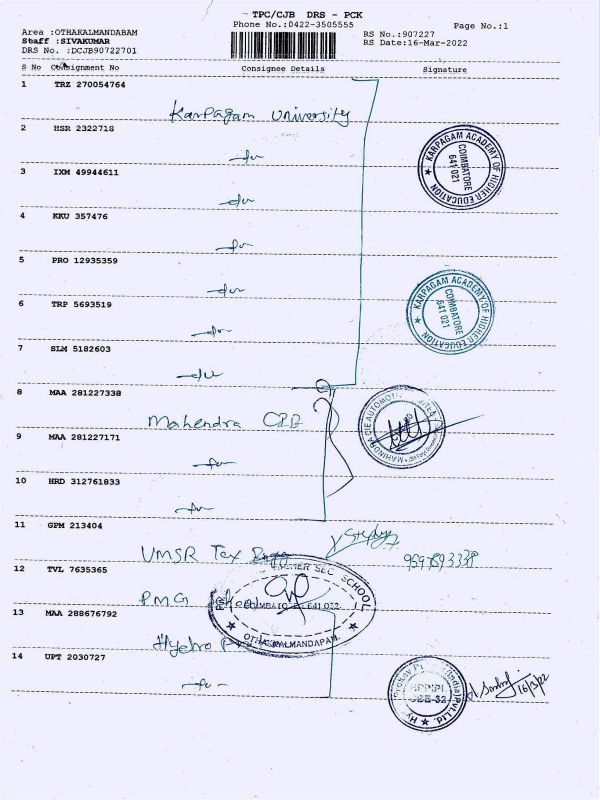 TPC/CJB DRS - PCK
Phone No.:0422-3505555
Page No.:1
Area :OTHAKALMANDABAM
Staff :SIVAKUMAR
DRS No. :DCJB90722701
RS No.:907227
RS Date:16-Mar-2022
S No Consignment No Consignee Details Signature
1 TRZ 270054764
Karpagam University
2 HSR 2322718
3 IXM 49944611
KARPAGAM ACADEMY OF HIGHER EDUCATION
COIMBATORE
641 021
4 KKU 357476
5 PRO 12935359
6 TRP 5693519
KARPAGAM ACADEMY OF HIGHER EDUCATION
COIMBATORE
641 021
7 SLM 5182603
8 MAA 281227338
Mahendra
9 MAA 281227171
10 HRD 312761833
11 GPM 213404
UMSR Tex
12 TVL 7635365
PMG
SEC SCHOOL
641 022
OTHAKALMANDAPAM
13 MAA 288676792
14 UPT 2030727
16/3/22